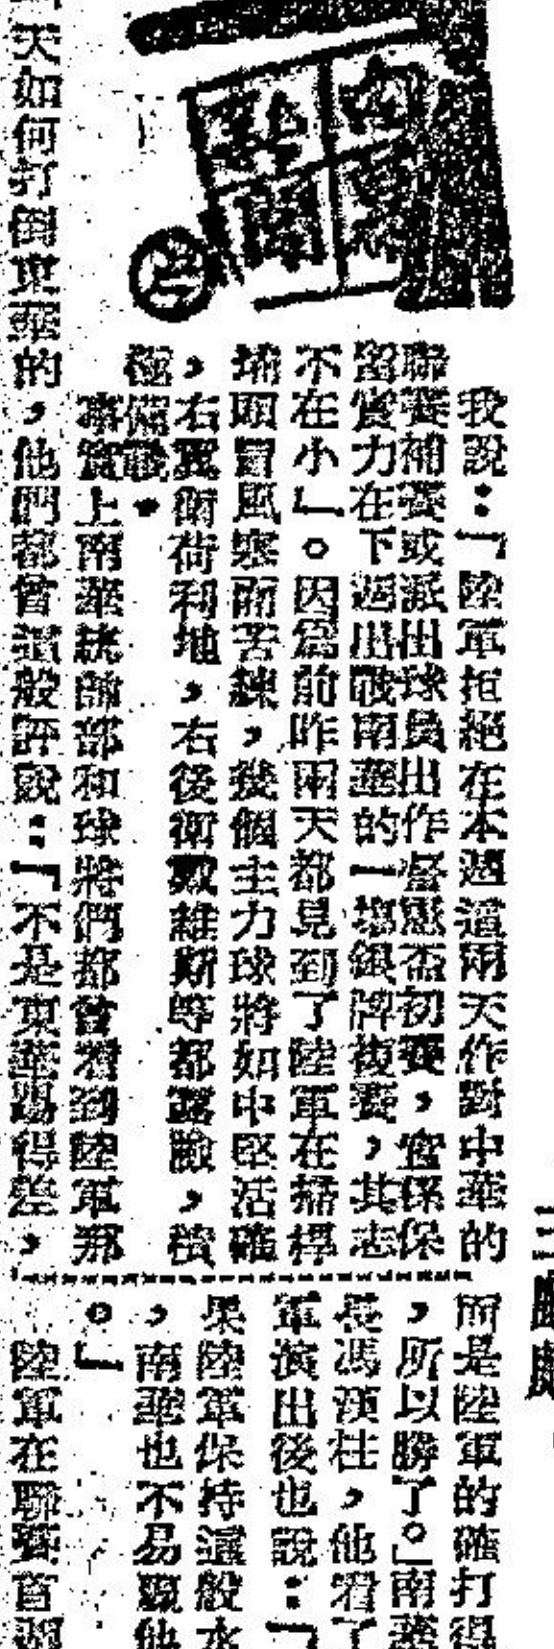 內幕
新聞
我說：「陸軍拒絕在本週這兩天作對中華的
聯賽補賽或派出球員出作督憲盃初賽，實係保
留實力在下週出戰南華的一塲銀牌複賽，其志
不在小」。因爲前昨兩天都見到了陸軍在掃桿
埔頭冒風寒而苦練，幾個主力球將如中堅活確
，右翼衛荷利地，右後衛戴維斯等都露臉，積
極備戰。
事實上南華統帥部和球將們都曾看到陸軍那
天如何打倒東華的，他們都曾這般評說：「不是東華踢得差，
而是陸軍的確打得
，所以勝了。」南華
長馮漢柱，他看了
軍演出後也說：「
果陸軍保持這般水
，南華也不易贏他
。」
陸軍在聯賽首